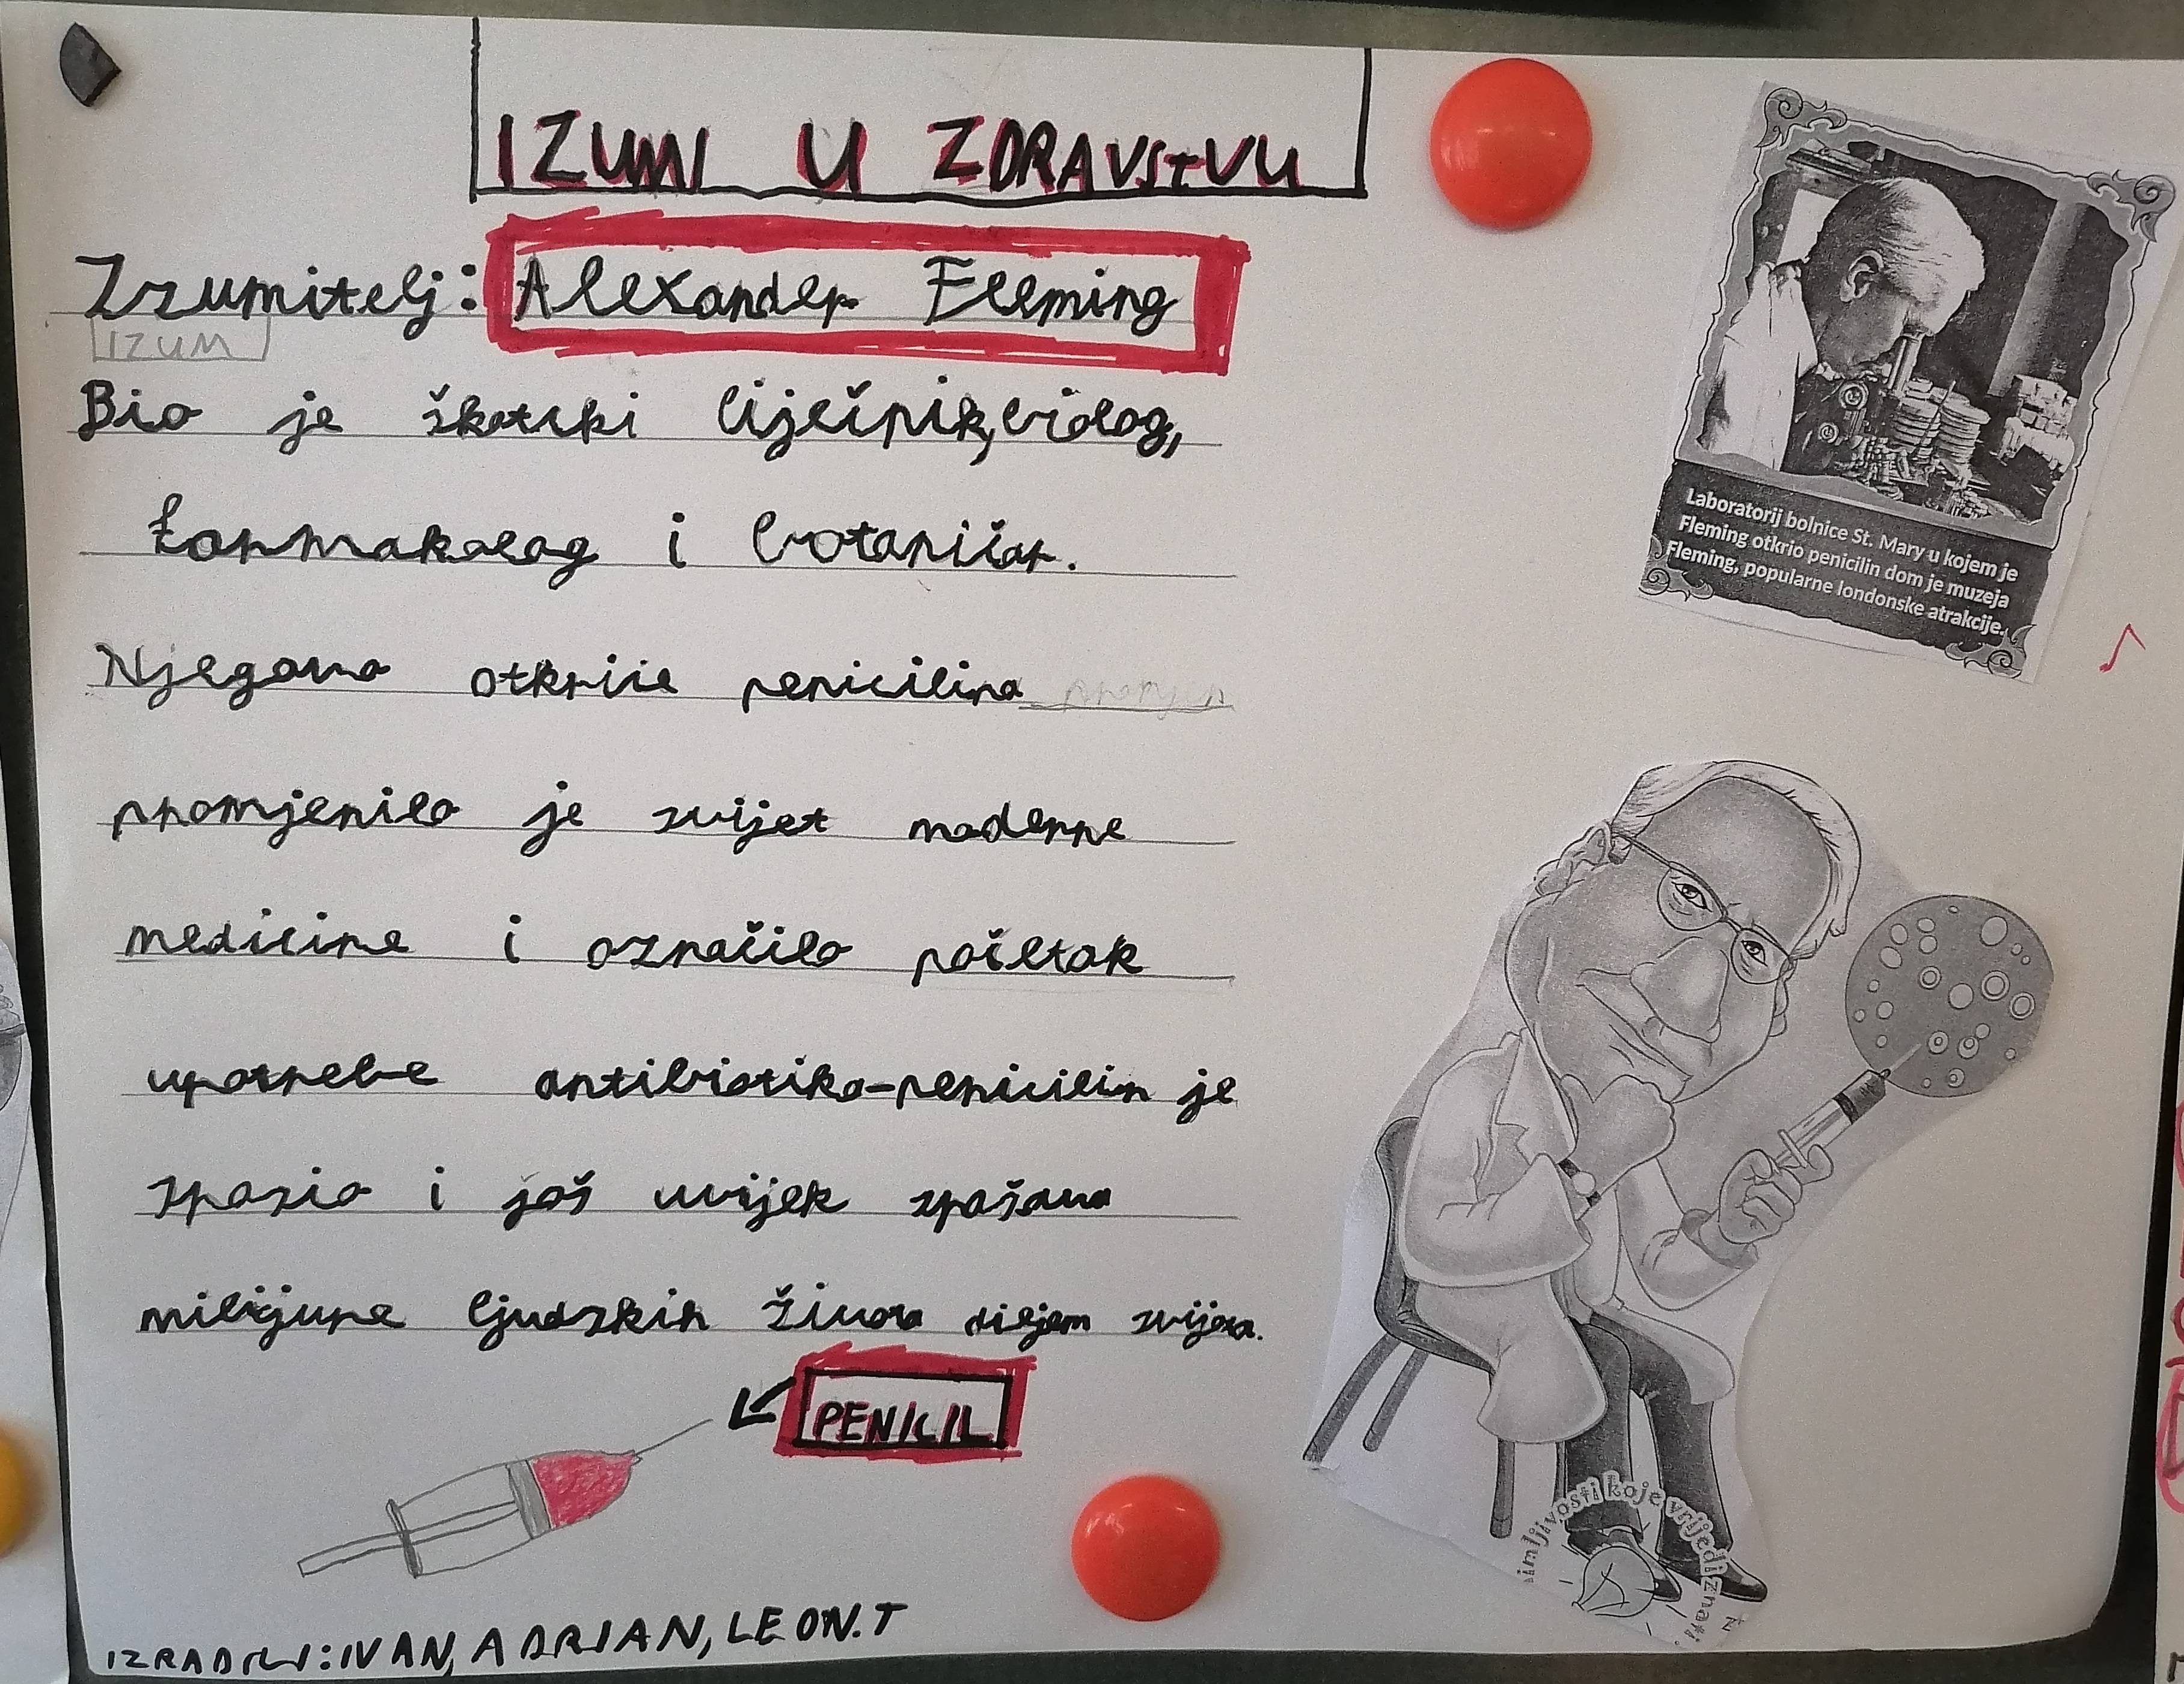 IZUMI U ZDRAVSTVU
Izumitelj: Alexander Fleming
IZUM
Bio je škotski liječnik, biolog,
farmakolog i botaničar.
Njegovo otkriće penicilina
promjenilo je svijet moderne
medicine i označilo početak
upotrebe antibiotika-penicilin je
spasio i još uvijek spašava
milijune ljudskih života diljem svijeta.
PENICIL
IZRADILI: IVAN, ADRIAN, LEON.T
Laboratorij bolnice St. Mary u kojem je
Fleming otkrio penicilin dom je muzeja
Fleming, popularne londonske atrakcije.
imljivosti koje vrijedi znati